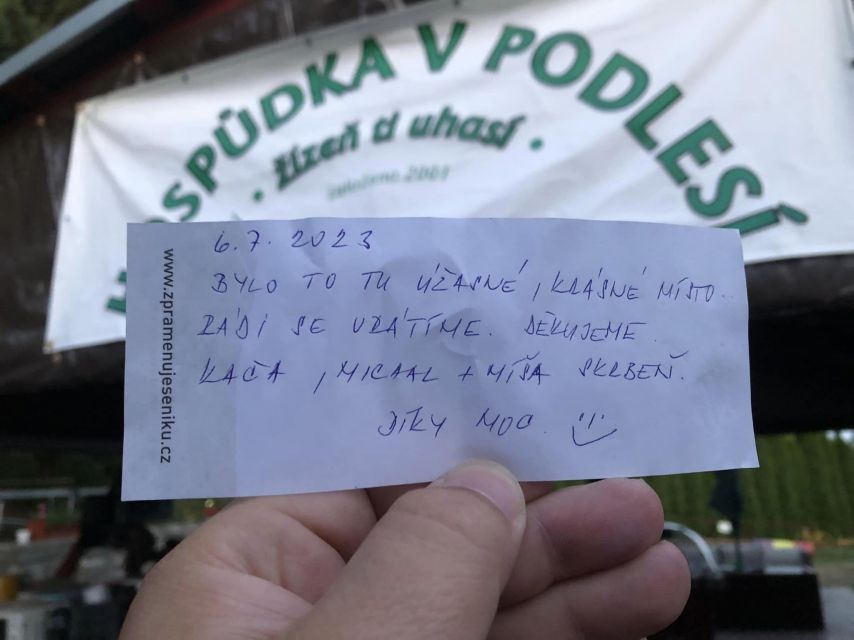 HOSPŮDKA V PODLESÍ
• žízeň ti uhasí •
založeno 2001
www.zpramenujeseniku.cz
6.7. 2023
BYLO TO TU ÚŽASNÉ, KRÁSNÉ MÍSTO..
RÁDI SE VRÁTÍME. DĚKUJEME.
KAČA, MICHAL + MÍŠA SKRBEŇ.
DÍKY MOC. :)